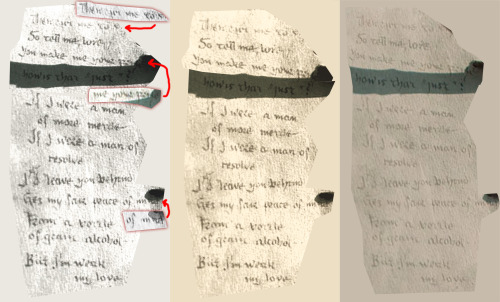 me
So tell me, love
You make me your
how is that just?
me your
If I were a man
of more
If I were a man of
resolve
I'd leave you behind
Get my last peace of
of
From a bottle
of grain alcohol
But I'm weak
my love
me
So tell me, love
You make me your
how is that just?
If I were a man
of more
If I were a man of
resolve
I'd leave you behind
Get my last peace of
From a bottle
of grain alcohol
But I'm weak
my love
me
So tell me, love
You make me your
how is that just?
If I were a man
of more
If I were a man of
resolve
I'd leave you behind
Get my last peace of
From a bottle
of grain alcohol
But I'm weak
my love